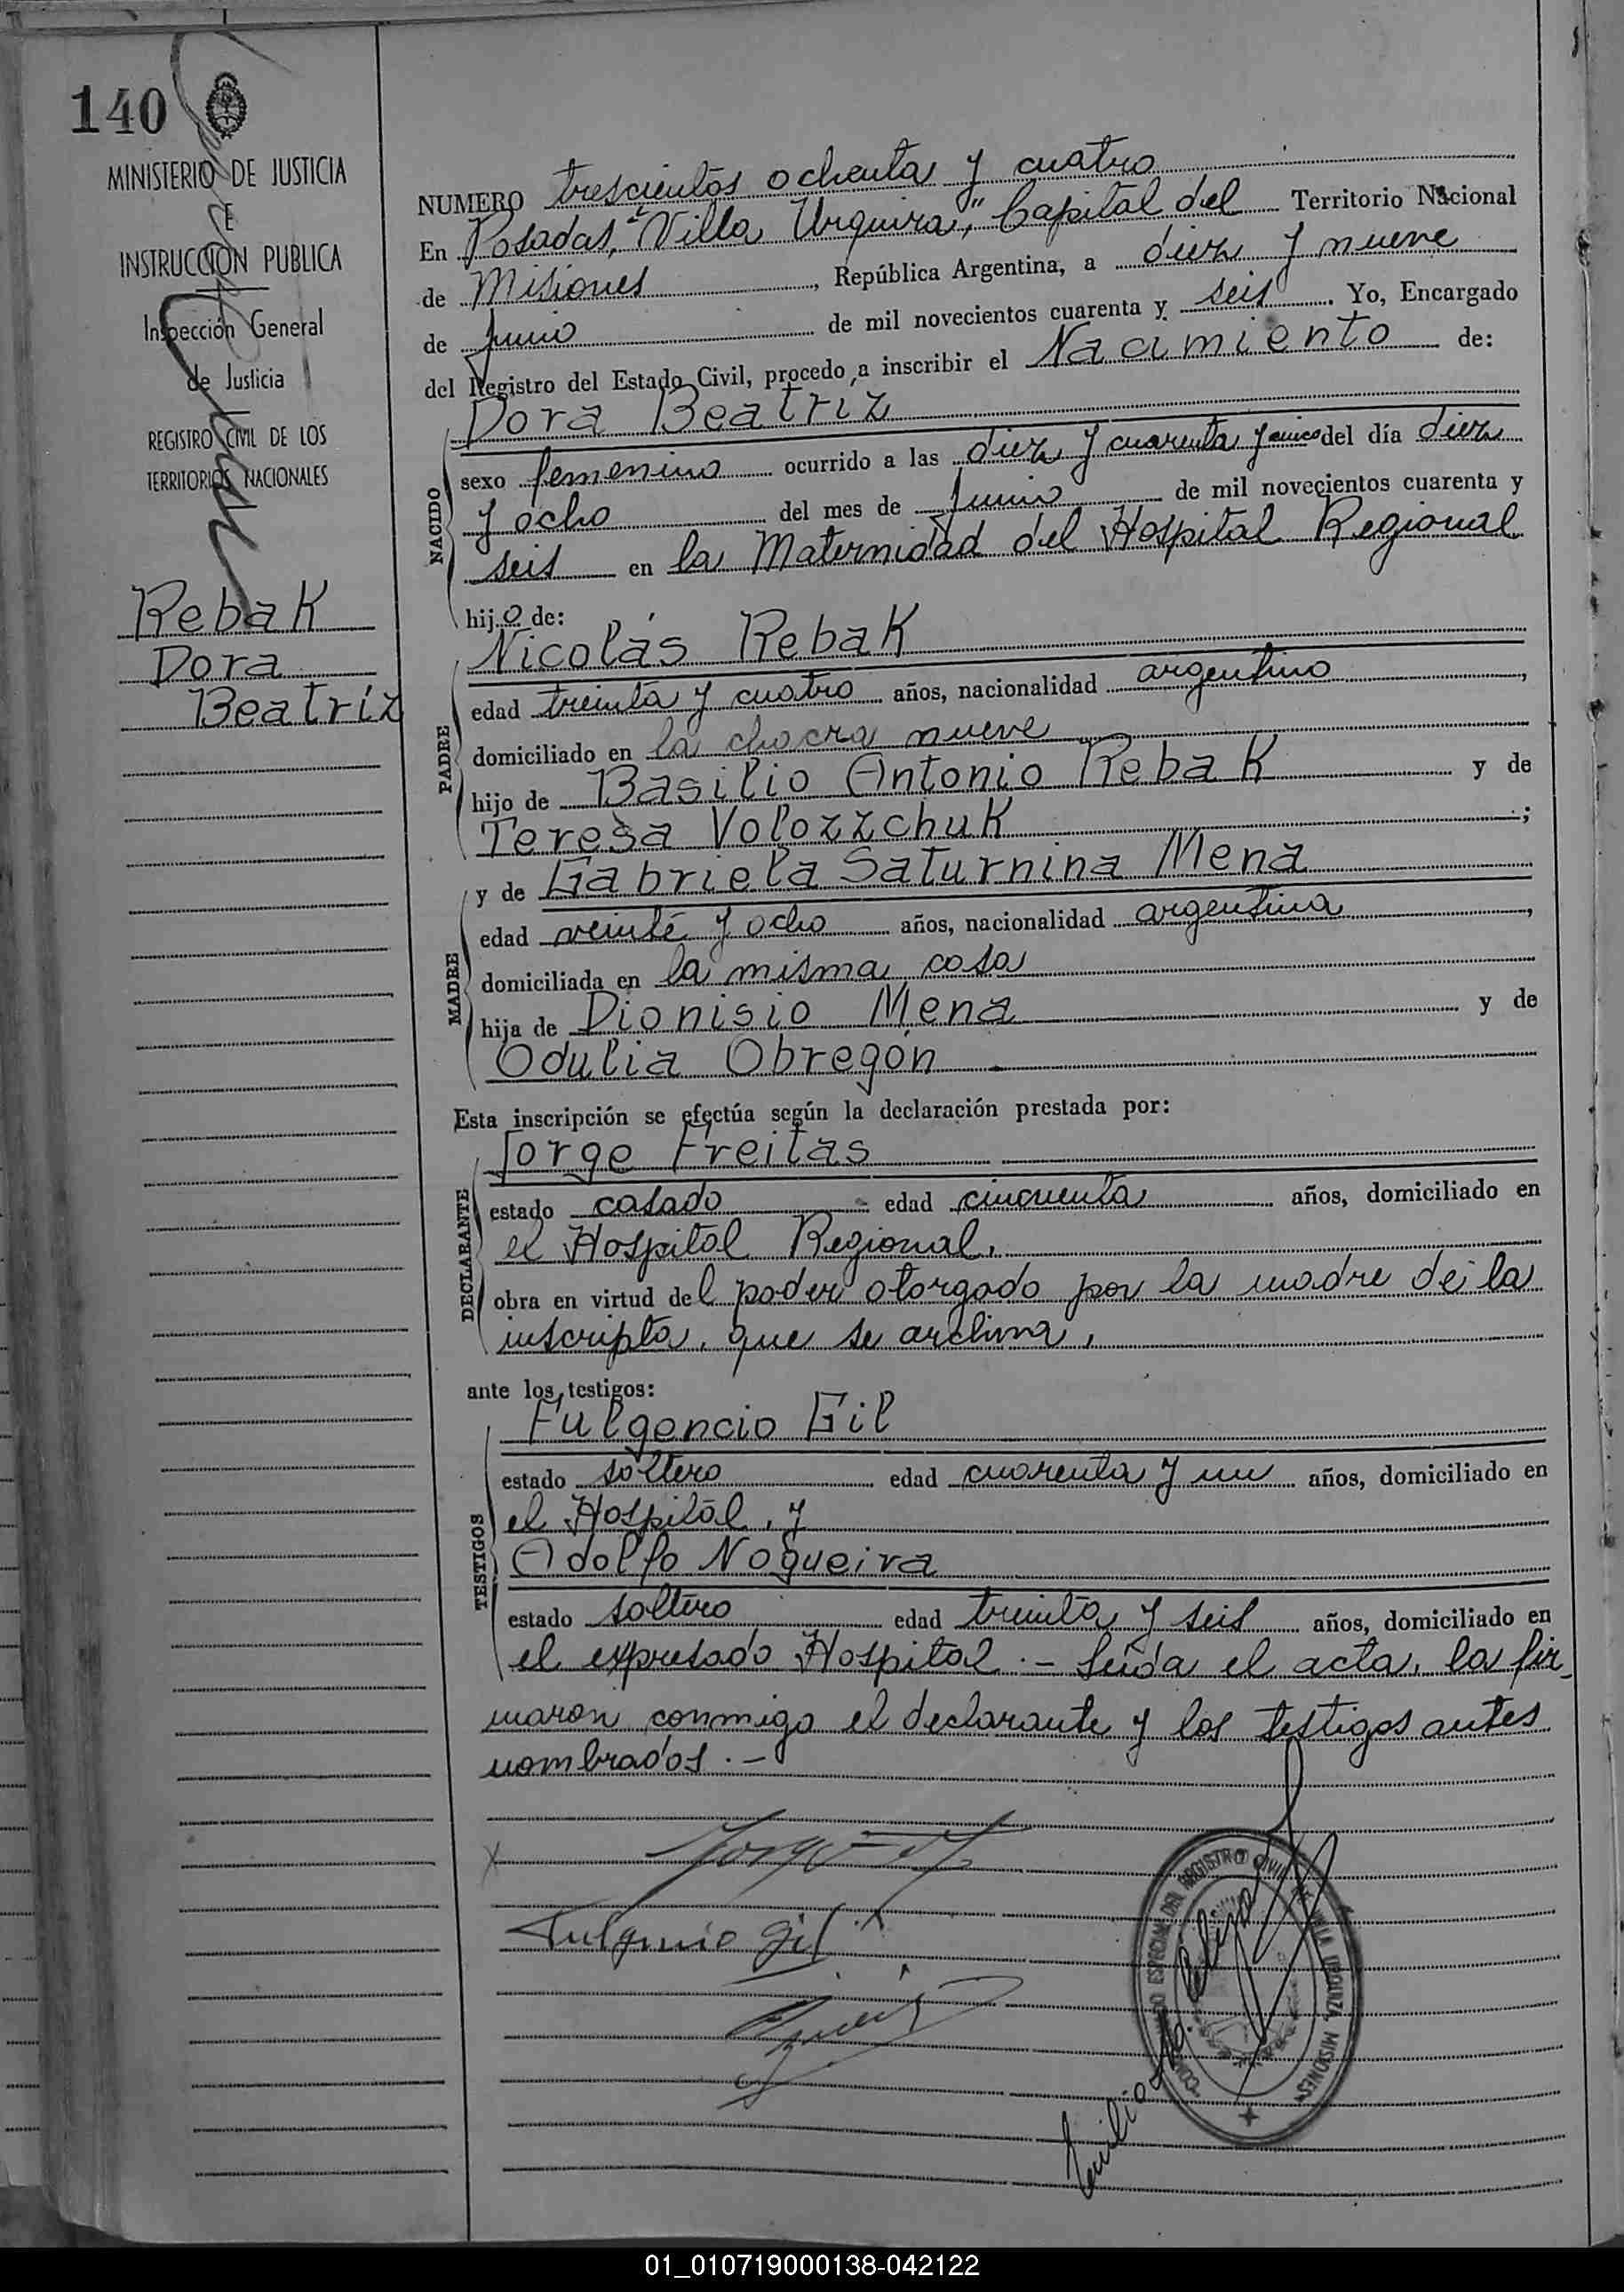 140
MINISTERIO DE JUSTICIA
E
INSTRUCCION PUBLICA
Inspección General
de Justicia
REGISTRO CIVIL DE LOS
TERRITORIOS NACIONALES
Rebak
Dora
Beatriz
NUMERO trescientos ochenta y cuatro
En Posadas, "Villa Urquiza", Capital del Territorio Nacional
de Misiones, República Argentina, a diez y nueve
de Junio de mil novecientos cuarenta y seis. Yo, Encargado
del Registro del Estado Civil, procedo a inscribir el Nacimiento de:
Dora Beatriz
NACIDO
sexo femenino ocurrido a las diez y cuarenta y cinco del día diez
y ocho del mes de Junio de mil novecientos cuarenta y
seis en la Maternidad del Hospital Regional
hijo de:
Nicolás Rebak
PADRE
edad treinta y cuatro años, nacionalidad argentino,
domiciliado en la chacra nueve
hijo de Basilio Antonio Rebak y de
Teresa Volozzchuk;
y de Gabriela Saturnina Mena
MADRE
edad veinte y ocho años, nacionalidad argentina,
domiciliada en la misma casa
hija de Dionisio Mena y de
Odulia Obregón
Esta inscripción se efectúa según la declaración prestada por:
Jorge Freitas
DECLARANTE
estado casado edad cincuenta años, domiciliado en
el Hospital Regional,
obra en virtud del poder otorgado por la madre de la
inscripta, que se archiva,
ante los testigos:
Fulgencio Gil
TESTIGOS
estado soltero edad cuarenta y un años, domiciliado en
el Hospital, y
Adolfo Nogueira
estado soltero edad treinta y seis años, domiciliado en
el expresado Hospital.- Leída el acta, la fir-
maron conmigo el declarante y los testigos antes
nombrados.-
Fulgencio Gil
DEL REGISTRO CIVIL DE VILLA URQUIZA, MISIONES
Emilio
01_010719000138-042122